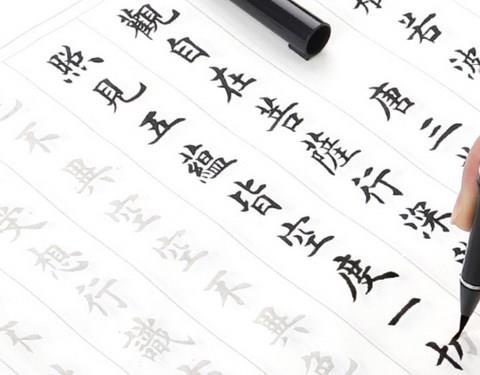 若波
唐三
觀自在菩薩行深
照見五蘊皆空度一切
不異空空不異色
受想行識
不